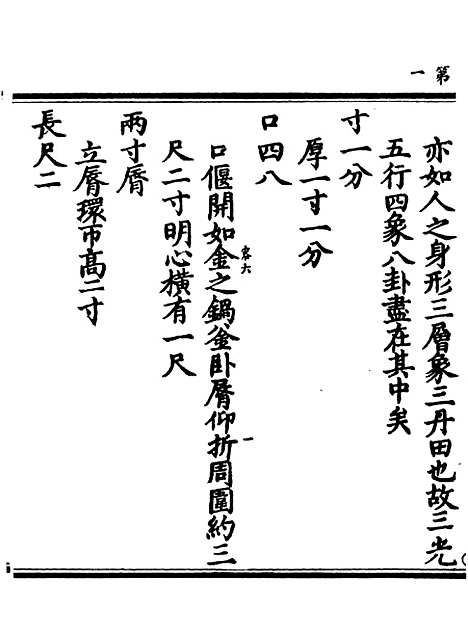 第一
亦如人之身形三層象三丹田也故三光
五行四象八卦盡在其中矣
寸一分
厚一寸一分
口四八
口偃開如金之鍋釜卧脣仰折周圍約三
容六
一
尺二寸明心橫有一尺
兩寸脣
立脣環匝高二寸
長尺二